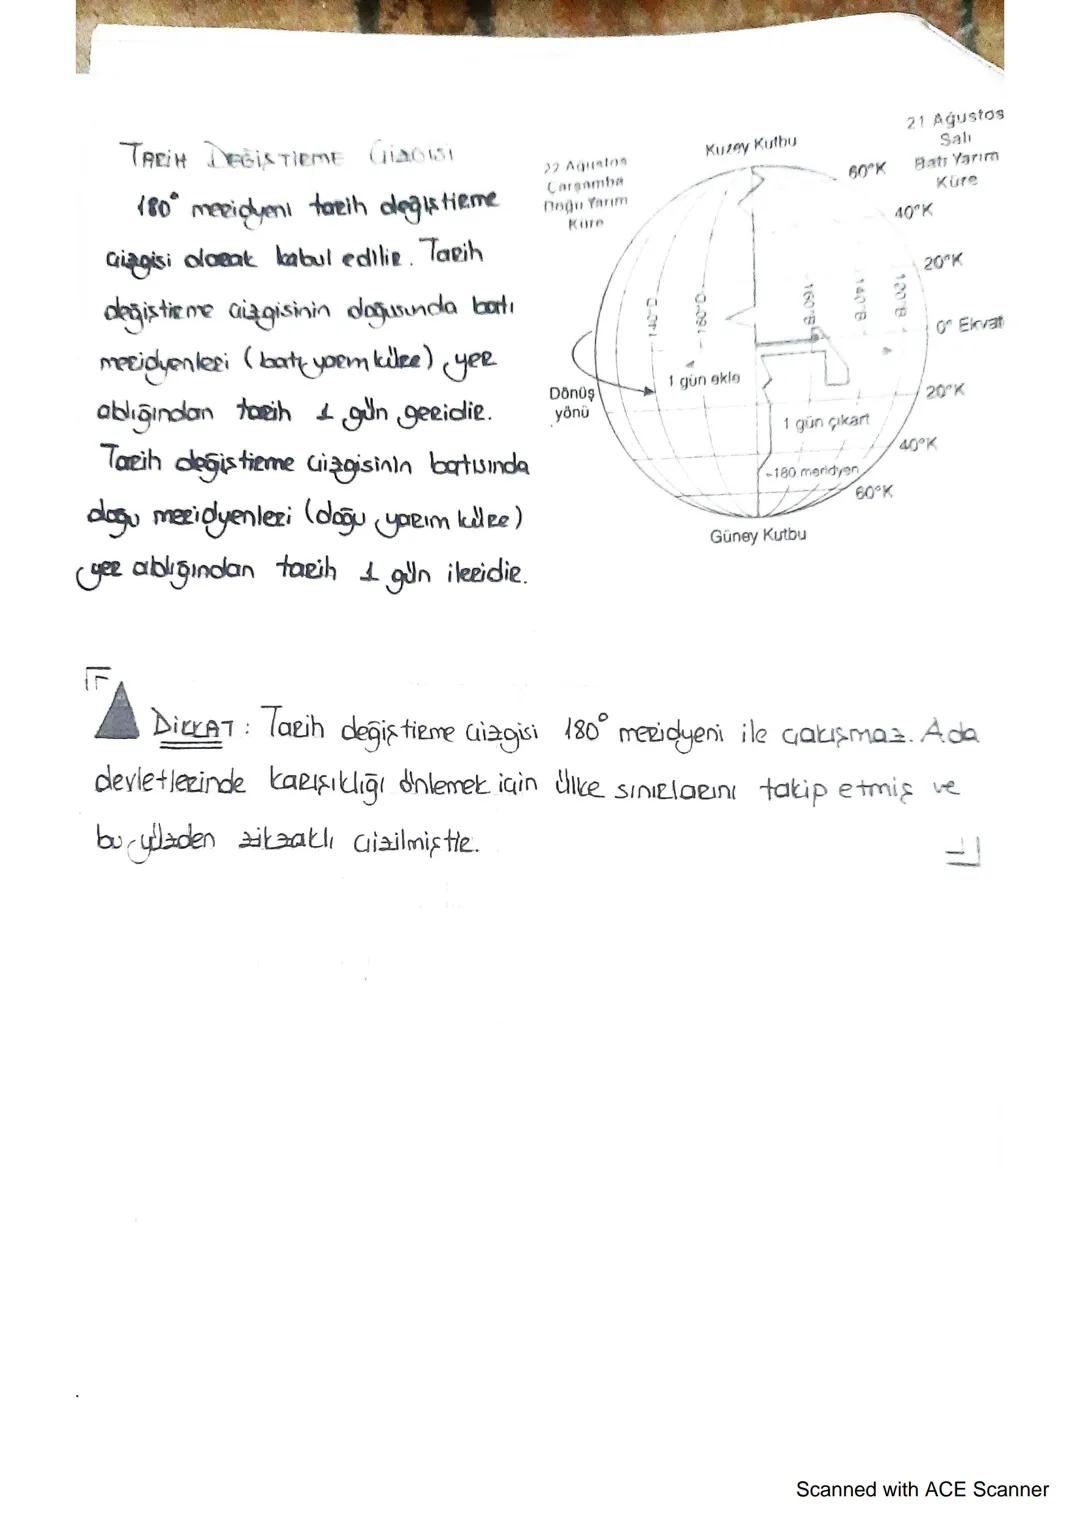 TARİH DEĞİŞTİRME ÇİZGİSİ
180° meridyeni tarih değiştirme
çizgisi olarak kabul edilir. Tarih
değiştirme çizgisinin doğusunda batı
meridyenleri (batı yarım küre) yer
aldığından tarih 1 gün geridir.
Tarih değiştirme çizgisinin batısında
doğu meridyenleri (doğu yarım küre)
yer aldığından tarih 1 gün ileridir.
22 Ağustos
Çarşamba
Doğu Yarım
Küre
Kuzey Kutbu
21 Ağustos
Salı
Batı Yarım
Küre
60°K
40°K
20°K
0° Ekvat
20°K
40°K
60°K
140°D
160°D
160°B
140°B
120°B
1 gün ekle
1 gün çıkart
Dönüş
yönü
180 meridyen
Güney Kutbu
DİKKAT: Tarih değiştirme çizgisi 180° meridyeni ile çakışmaz. Ada
devletlerinde karışıklığı önlemek için ülke sınırlarını takip etmiş ve
bu yüzden zikzaklı çizilmiştir.
Scanned with ACE Scanner